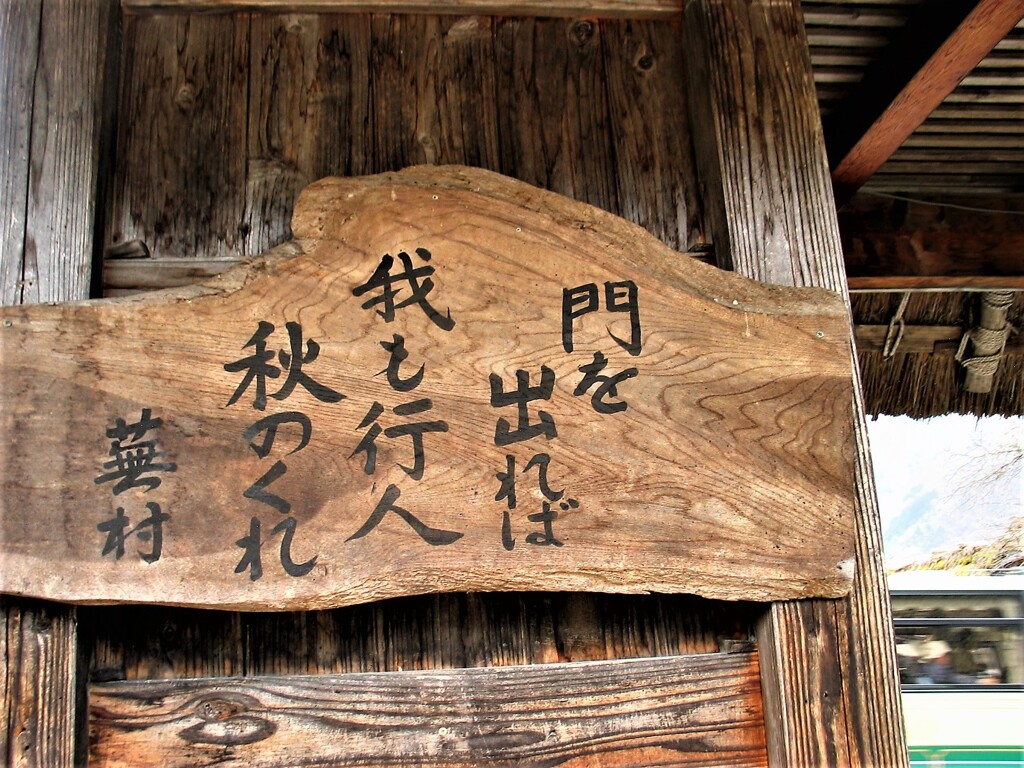 門を
出れば
我も行人
秋のくれ
蕪村